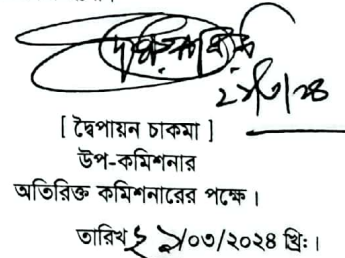 ২১/৩/২৪
[ দ্বৈপায়ন চাকমা ]
উপ-কমিশনার
অতিরিক্ত কমিশনারের পক্ষে ।
তারিখ ২১/০৩/২০২৪ খ্রিঃ ।